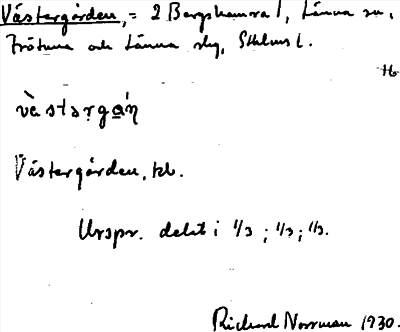 Västergården, = 2 Bergshamra 1, Länna sn,
Frötuna och Länna slg, Sthlms l.
Hb
västərgạń
Västergården, tb.
Urspr. delat i 1/3 ; 1/3 ; 1/3.
Richard Norrman 1930.